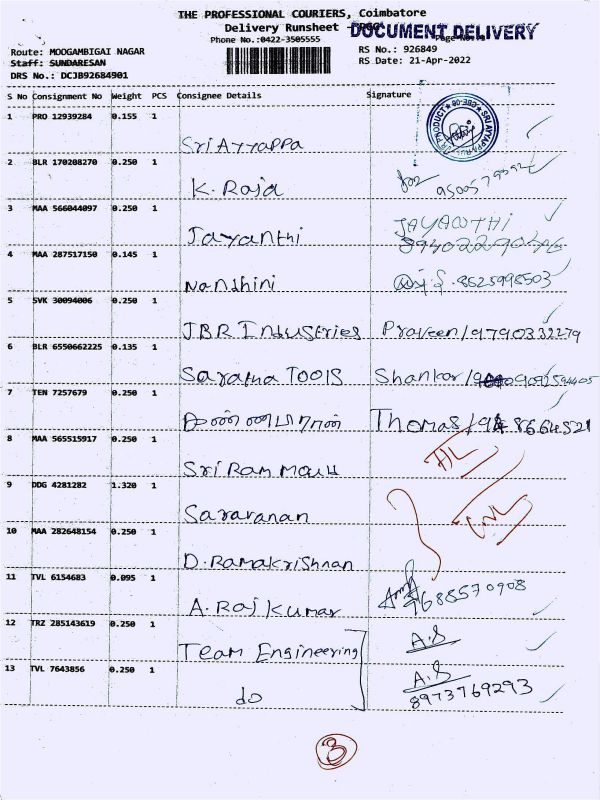 THE PROFESSIONAL COURIERS, Coimbatore
Delivery Runsheet
DOCUMENT DELIVERY
Phone No.:0422-3505555
Route: MOOGAMBIGAI NAGAR
Staff: SUNDARESAN
DRS No.: DCJB92684901
RS No.: 926849
RS Date: 21-Apr-2022
S No Consignment No Weight PCS Consignee Details Signature
1 PRO 12939284 0.155 1
Sri Ayyappa
2 BLR 170208270 0.250 1
K. Raja
3 MAA 566044097 0.250 1
Jayanthi JAYANTHI
4 MAA 287517150 0.145 1
Nandhini 8525998503
5 SVK 30094006 0.250 1
JBR Industries Praveen/9790332279
6 BLR 6550662225 0.135 1
Saratha TOOls Shankar/
7 TEN 7257679 0.250 1
Thomas/
8 MAA 565515917 0.250 1
Sri Ram Mould
9 DDG 4281282 1.320 1
Saravanan
10 MAA 282648154 0.250 1
D. Ramakrishnan
11 TVL 6154683 0.095 1
A. Raj Kumar 9688570908
12 TRZ 285143619 0.250 1
Team Engineering A.S
13 TVL 7643856 0.250 1
A.S
do 8973769293
3